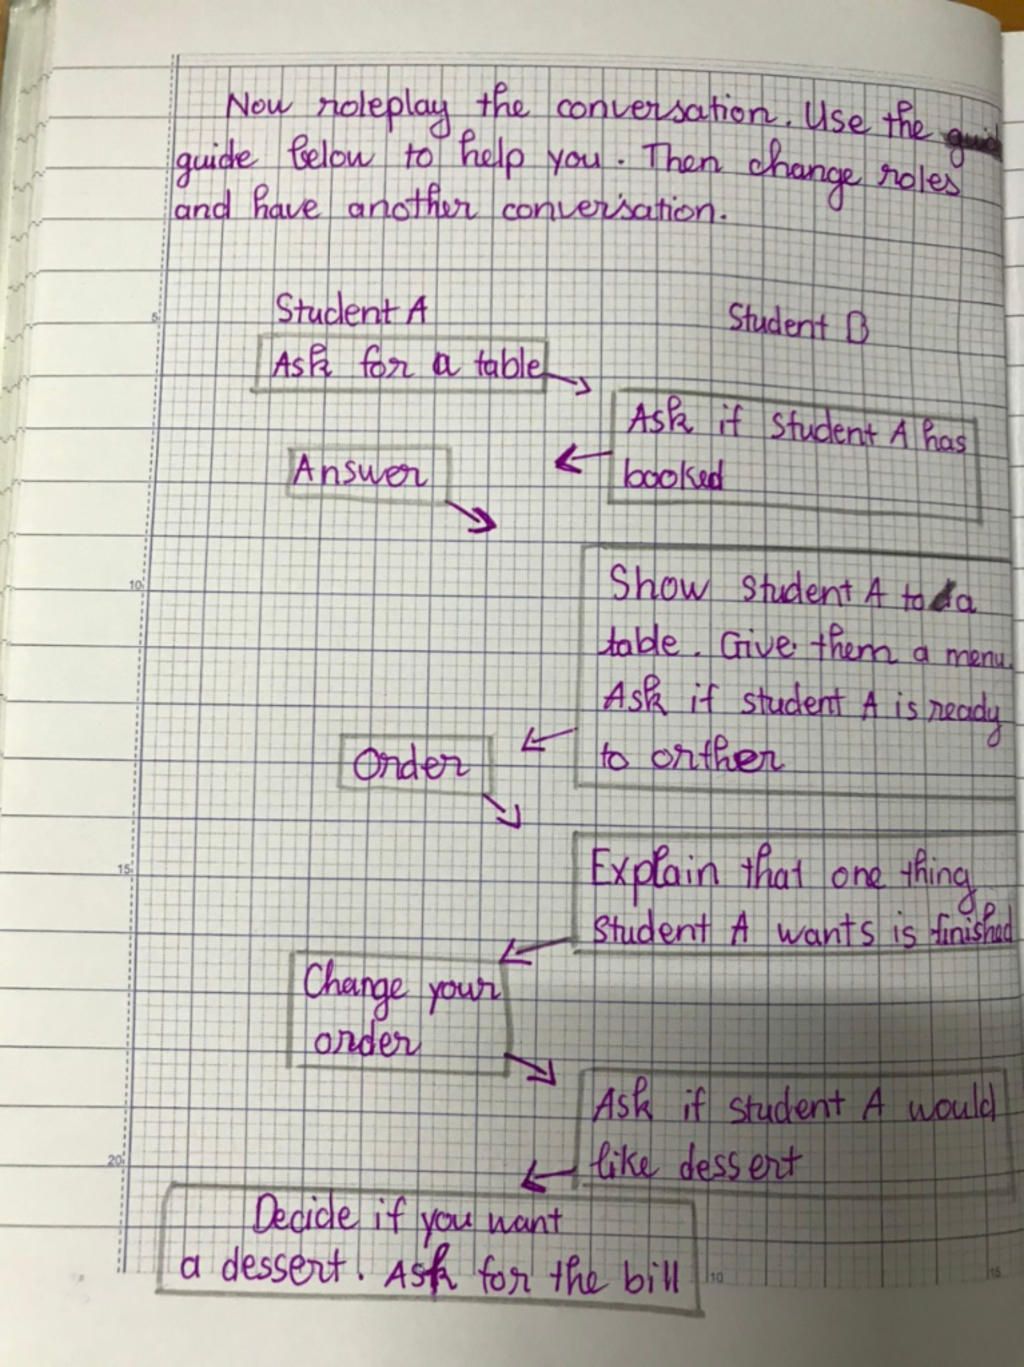 Now roleplay the conversation. Use the
guide below to help you. Then change roles
and have another conversation.
Student A
Student B
Ask for a table
Ask if student A has
booked
Answer
Show student A to a
table. Give them a menu
Ask if student A is ready
to orther
Order
Explain that one thing
student A wants is finished
Change your
order
Ask if student A would
like dessert
Decide if you want
a dessert. Ask for the bill
5
10
15
20
10
15